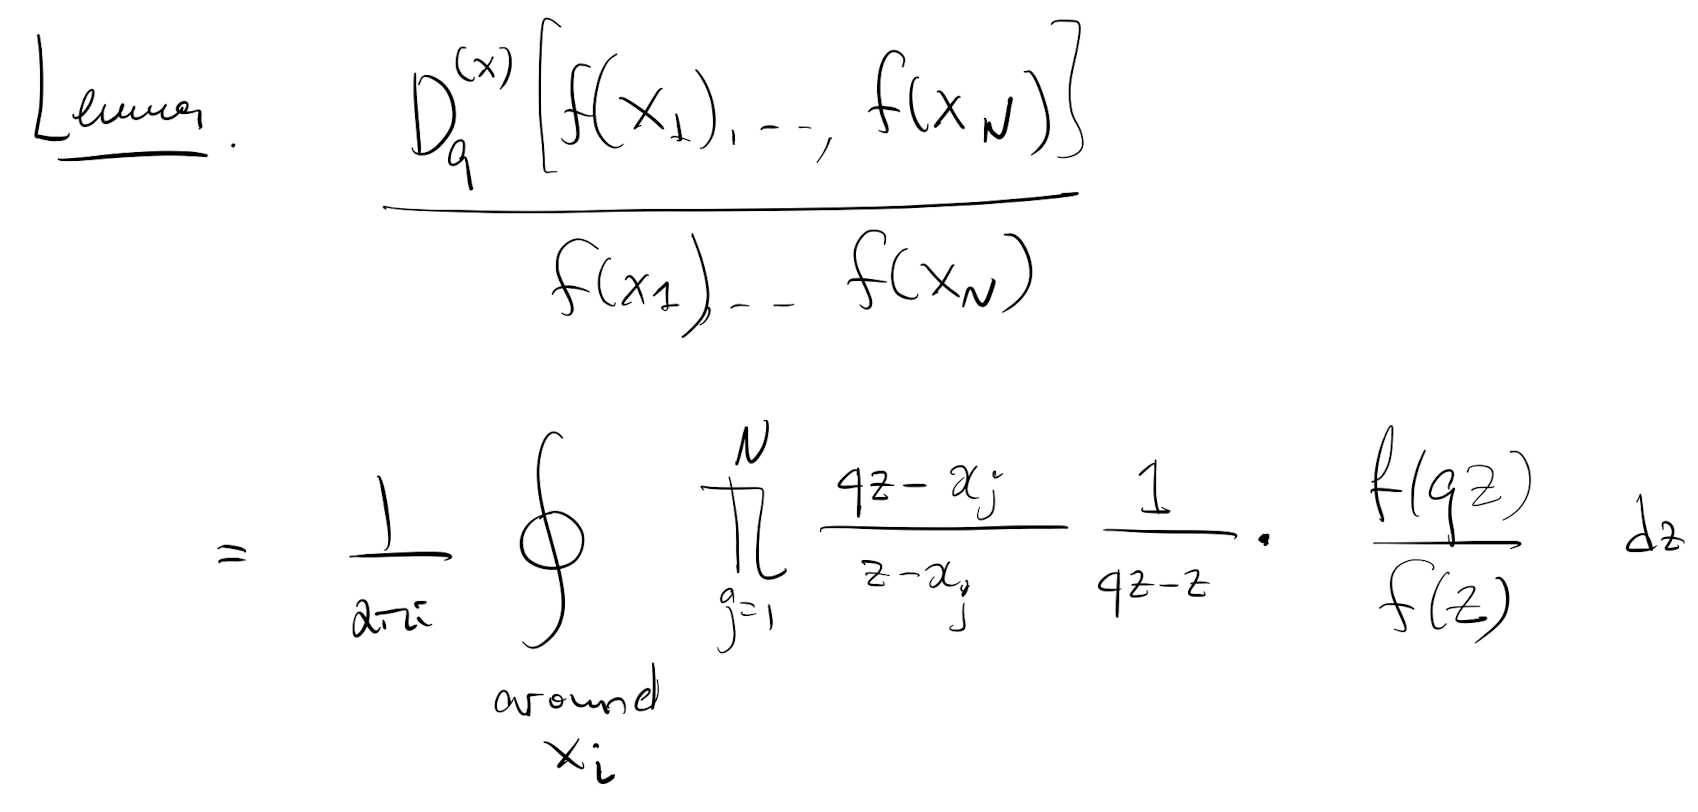 Lemma. \frac{D_q^{(x)} [f(x_1), \ldots, f(x_N)]}{f(x_1) \ldots f(x_N)}
= \frac{1}{2\pi i} \oint_{\text{around } x_i} \prod_{j=1}^{N} \frac{qz - x_j}{z - x_j} \frac{1}{qz - z} \cdot \frac{f(qz)}{f(z)} dz